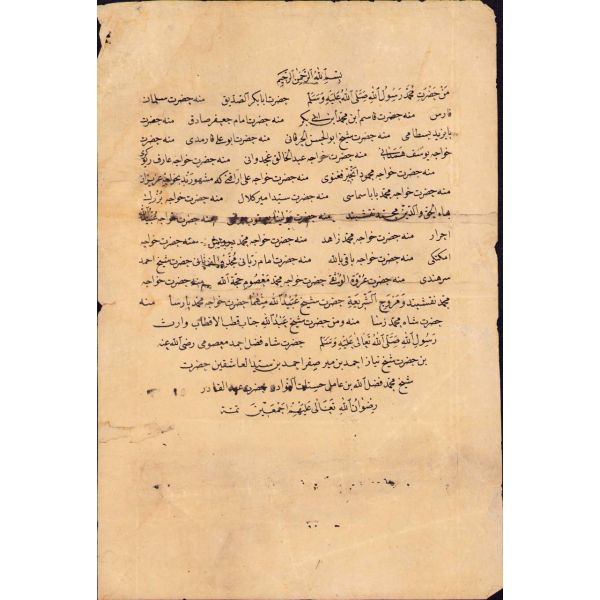 بِسْمِ اللهِ الرَّحْمٰنِ الرَّحِيْمِ
مِنْ حَضْرَتِ مُحَمَّد رَسُولُ اللهِ صَلَّى اللهُ عَلَيْهِ وَسَلَّمْ حضرت ابابكر الصّديق منه حضرت سلمان
فارس منه حضرت قاسم ابن محمد ابن ابى بكر منه حضرت امام جعفر صادق منه حضرت
بايزيد بسطامى منه حضرت شيخ ابو الحسن الخرقانى منه حضرت ابو على فارمدى منه حضرت
خواجه يوسف منه حضرت خواجه عبد الخالق غجدوانى منه حضرت خواجه عارف
منه حضرت خواجه محمود انجير فغنوى منه حضرت خواجه على رامتنى كه مشهورند بخواجه عزيزان
منه حضرت خواجه محمد بابا سماسى منه حضرت سيد امير كلال منه حضرت خواجه بزرك
بهاء الحق والدين منه حضرت مولينا يعقوب منه حضرت خواجه
احرار منه حضرت خواجه محمد زاهد منه حضرت خواجه محمد منه حضرت خواجه
امكنكى منه حضرت خواجه باقى بالله منه حضرت امام ربانى مجدد الف ثانى حضرت شيخ احمد
سرهندى منه حضرت عروة الوثقى حضرت خواجه محمد معصوم حجة الله منه حضرت خواجه
محمد نقشبند ومروج الشريعة حضرت شيخ عبيد الله حضرت خواجه محمد پارسا منه
حضرت شاه محمد رسا منه ومن حضرت شيخ عبد الله جناب قطب الاقطاب وارث
رسول الله صلّى الله تعالى عليه وسلّم حضرت شاه فضل احمد معصومى رضى الله عنه
بن حضرت شيخ نياز احمد بن مير صفر احمد بن سند العاشقين حضرت
شيخ محمد فضل الله بن حضرت عبد القادر
رضوان الله تعالى عليهم اجمعين تمه